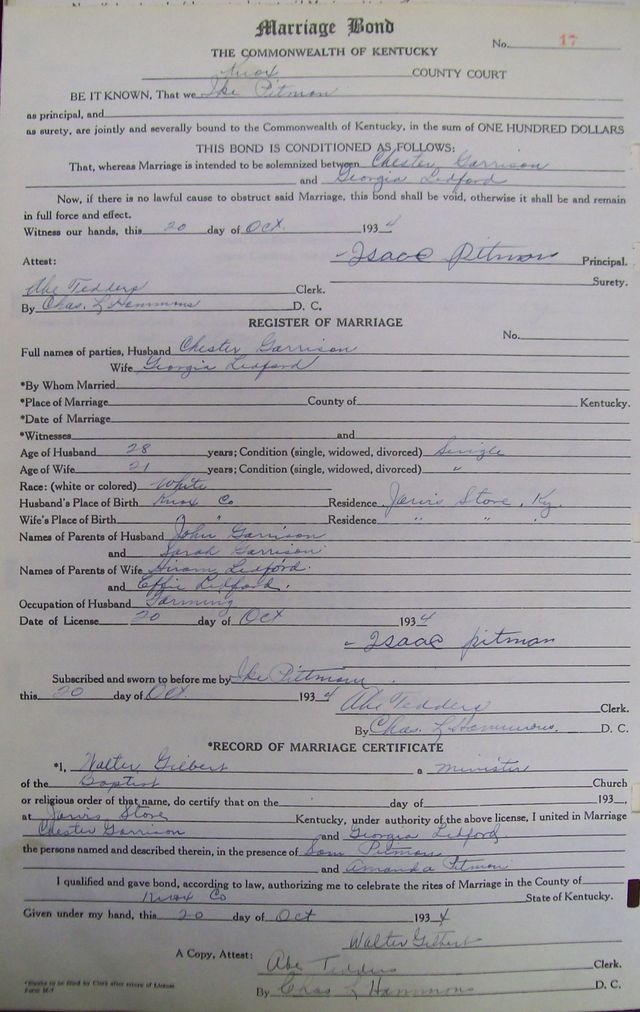 Marriage Bond
THE COMMONWEALTH OF KENTUCKY
No. 17
Knox COUNTY COURT
BE IT KNOWN, That we Ike Pitman
as principal, and
as surety, are jointly and severally bound to the Commonwealth of Kentucky, in the sum of ONE HUNDRED DOLLARS
THIS BOND IS CONDITIONED AS FOLLOWS:
That, whereas Marriage is intended to be solemnized between Chester Garrison
and Georgia Ledford
Now, if there is no lawful cause to obstruct said Marriage, this bond shall be void, otherwise it shall be and remain
in full force and effect.
Witness our hands, this 20 day of Oct. 1934
Attest: Isaac Pitman Principal.
Surety.
Abe Tedders Clerk.
By Chas. L Hammons D. C.
REGISTER OF MARRIAGE
No.
Full names of parties, Husband Chester Garrison
Wife Georgia Ledford
*By Whom Married
*Place of Marriage County of Kentucky.
*Date of Marriage
*Witnesses and
Age of Husband 28 years; Condition (single, widowed, divorced) Single
Age of Wife 21 years; Condition (single, widowed, divorced) "
Race: (white or colored) White
Husband's Place of Birth Knox Co Residence Jarvis Store, Ky.
Wife's Place of Birth " " Residence " " "
Names of Parents of Husband John Garrison
and Sarah Garrison
Names of Parents of Wife Hiram Ledford.
and Effie Ledford.
Occupation of Husband Farming
Date of License 20 day of Oct 1934
Isaac pitman
Subscribed and sworn to before me by Ike Pittman.
this 20 day of Oct. 1934 Abe Tedders Clerk.
By Chas. L Hammons. D. C.
*RECORD OF MARRIAGE CERTIFICATE
*I, Walter Gilbert a minister
of the Baptist Church
or religious order of that name, do certify that on the day of 193
at Jarvis Store Kentucky, under authority of the above license, I united in Marriage
Chester Garrison and Georgia Ledford
the persons named and described therein, in the presence of Sam Pitman
and Amanda Pitman
I qualified and gave bond, according to law, authorizing me to celebrate the rites of Marriage in the County of
Knox Co State of Kentucky.
Given under my hand, this 20 day of Oct 1934
Walter Gilbert
A Copy, Attest: Abe Tedders Clerk.
By Chas L Hammons D. C.
*Blanks to be filled by Clerk after return of License